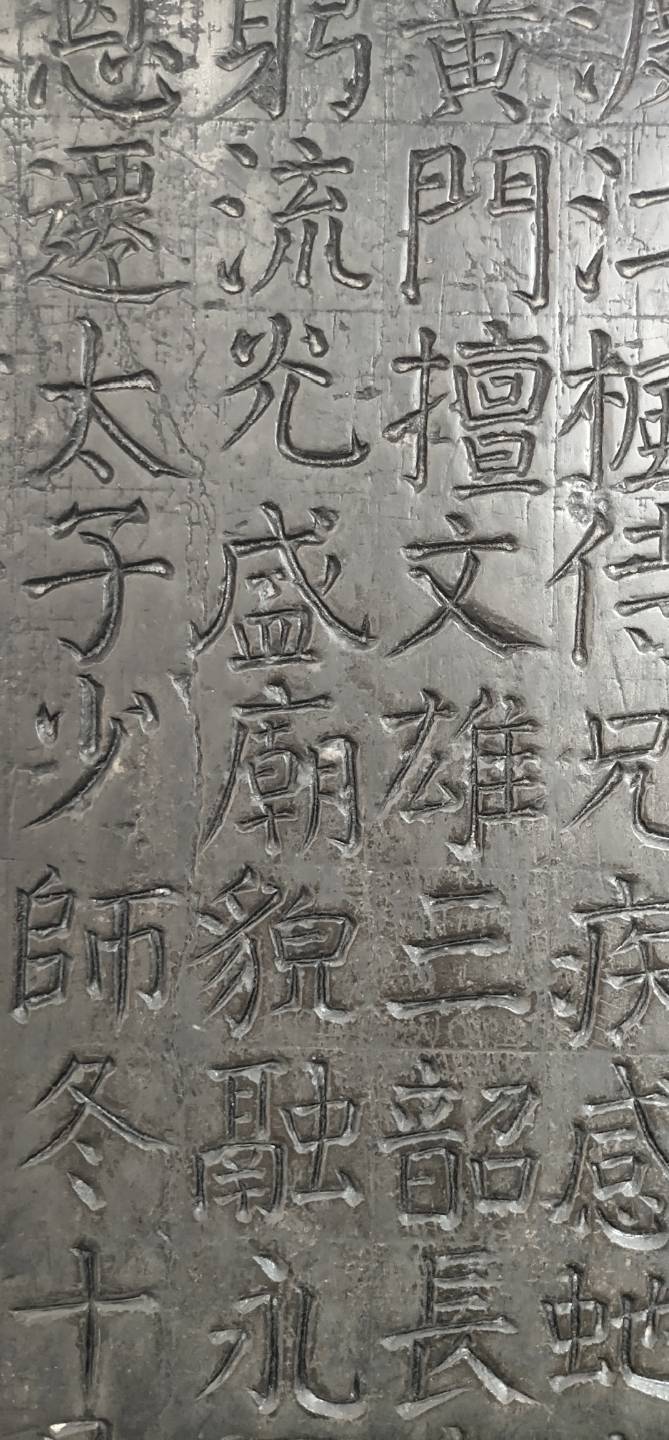 渡江侍兄疾感虵
黃門擅文雄三韶長
躬流光盛廟貌融礼
恩遷太子少師冬十